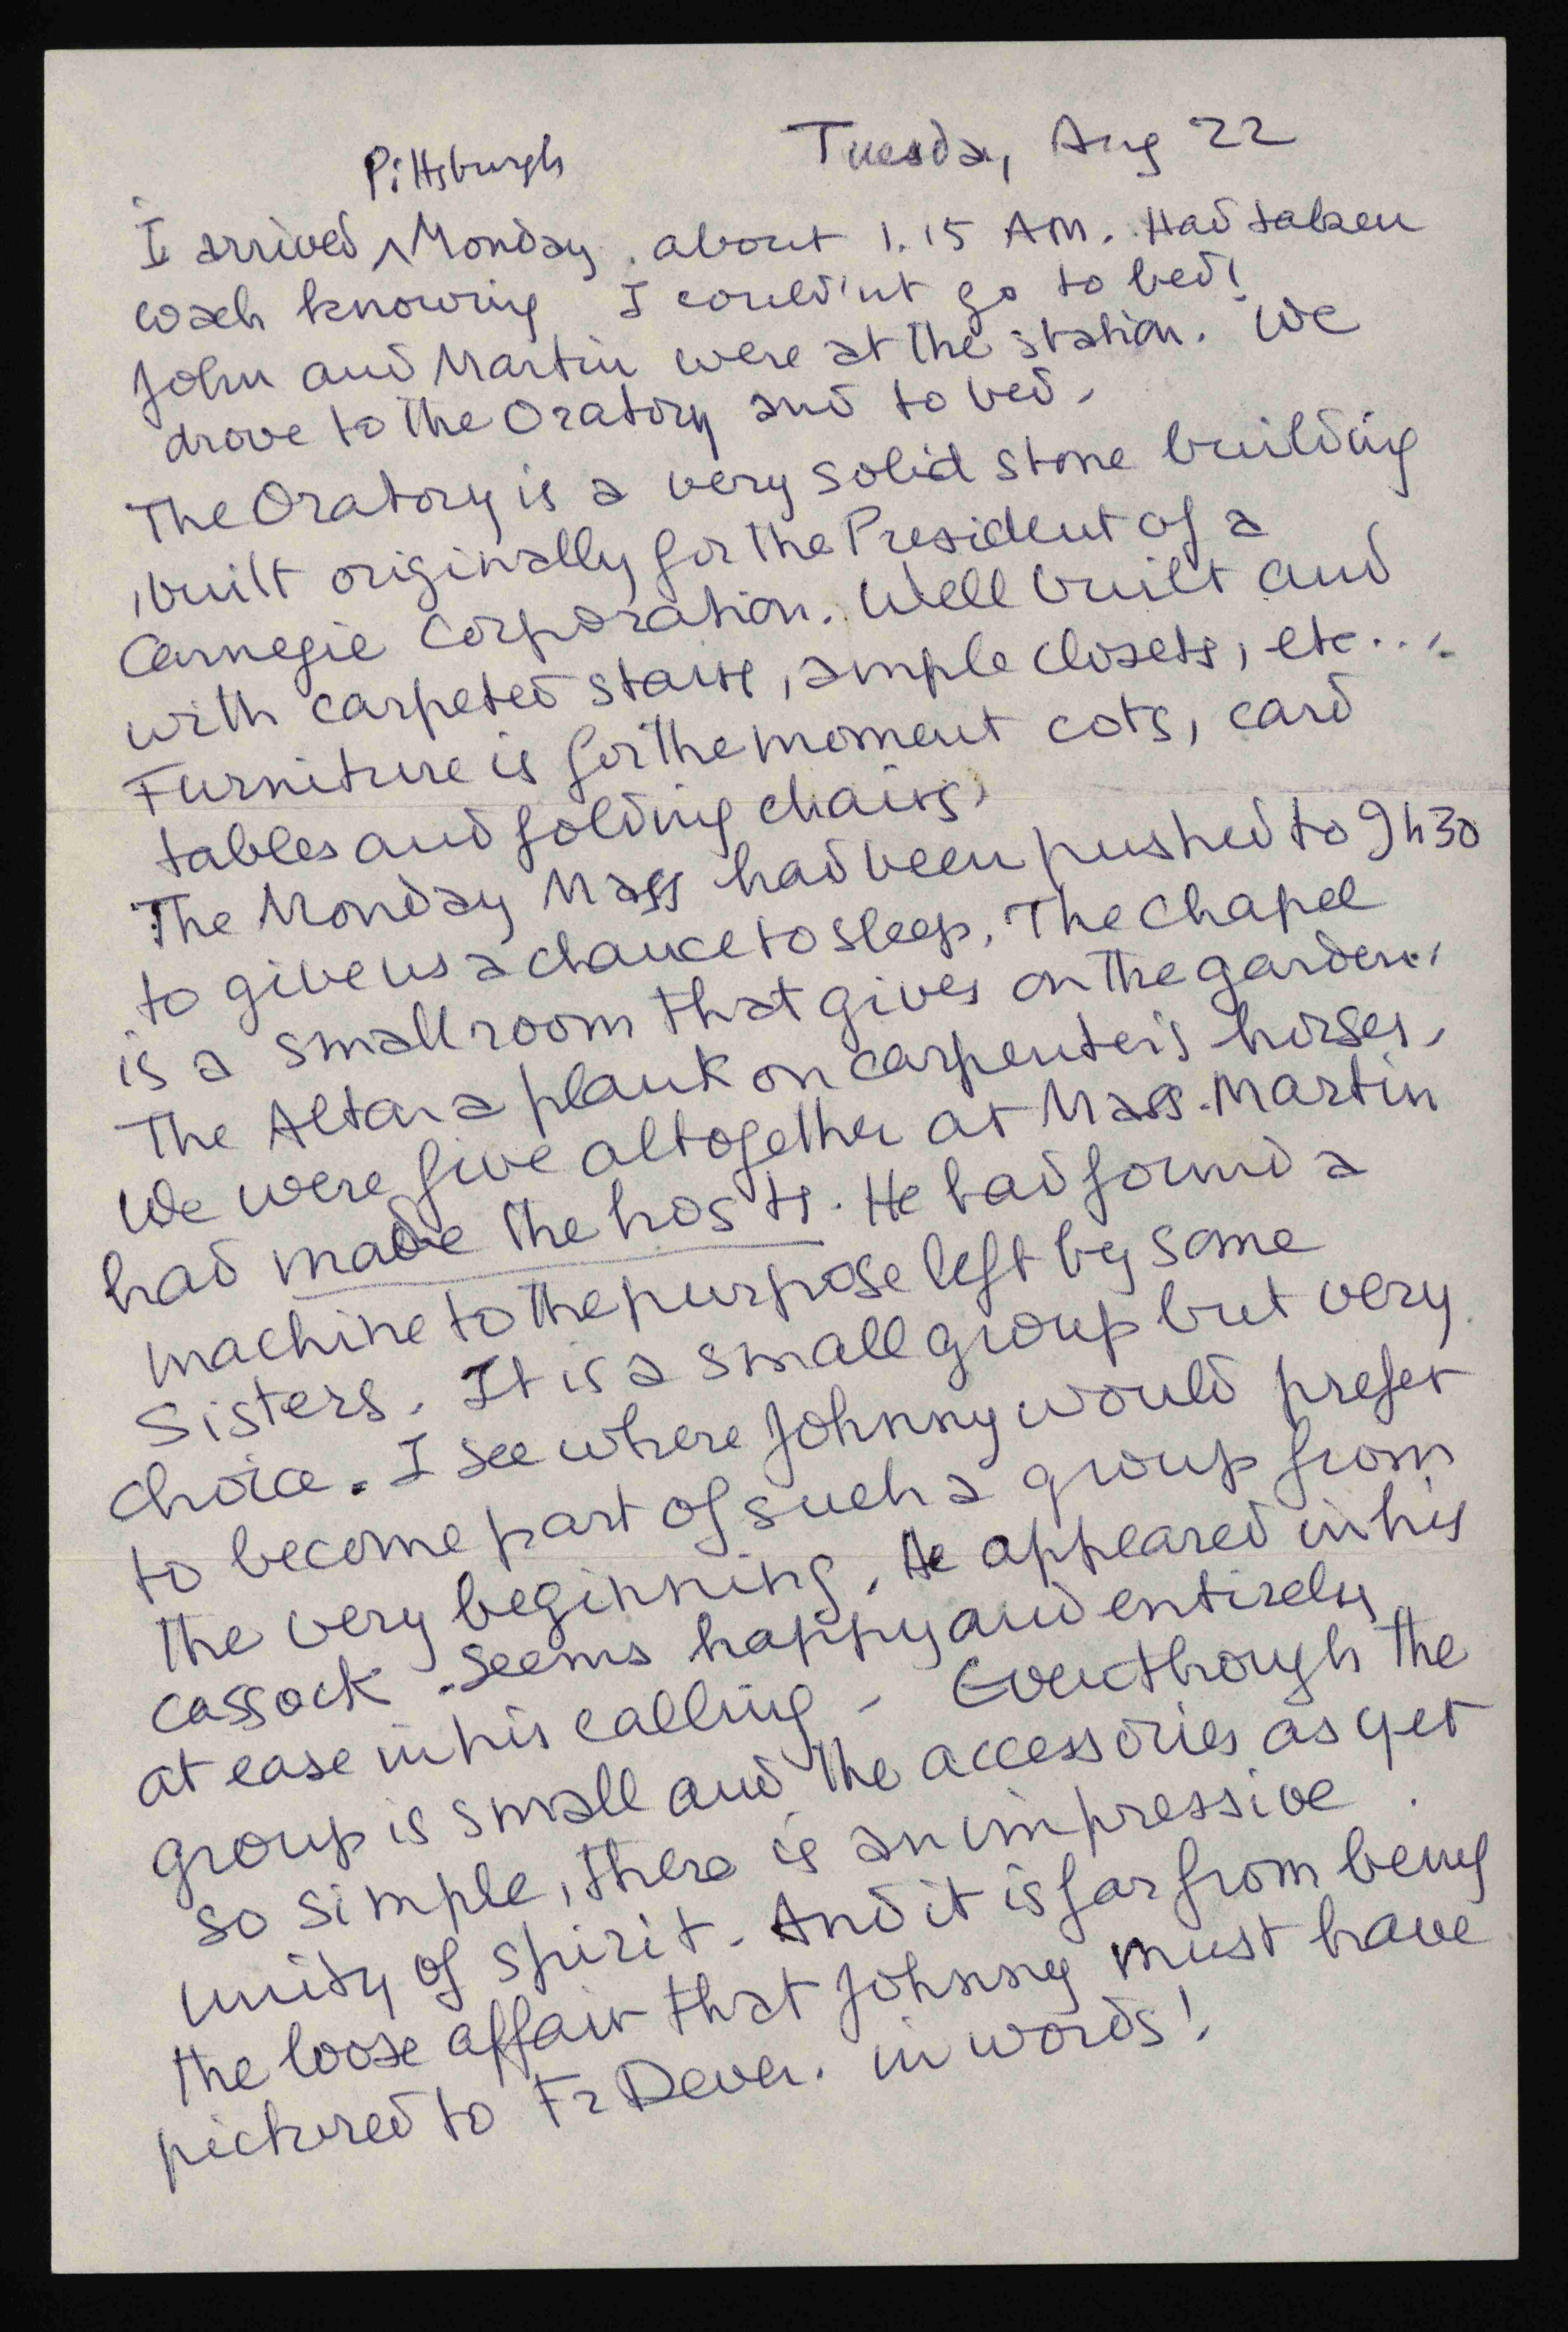 Tuesda, Aug 22
Pittsburgh
I arrived ^ Monday about 1.15 AM. Had taken
coach knowing I could'nt go to bed!
John and Martin were at the station. We
drove to the Oratory and to bed.
The Oratory is a very solid stone building
built originally for the President of a
Carnegie Corporation. Well built and
with carpeted stairs, ample closets, etc...
Furniture is for the moment cots, card
tables and folding chairs.
The Monday Mass had been pushed to 9h30
to give us a chance to sleep. The Chapel
is a small room that gives on the garden.
The Altar a plank on carpenter's horses.
We were five altogether at Mass. Martin
had made the hosts. He had found a
machine to the purpose left by some
Sisters. It is a small group but very
choice. I see where Johnny would prefer
to become part of such a group from
the very beginning. He appeared in his
cassock. Seems happy and entirely
at ease in his calling - Even though the
group is small and the accessories as yet
so simple, there is an impressive
unity of spirit. And it is far from being
the loose affair that Johnny must have
pictured to Fr Dever. in words!